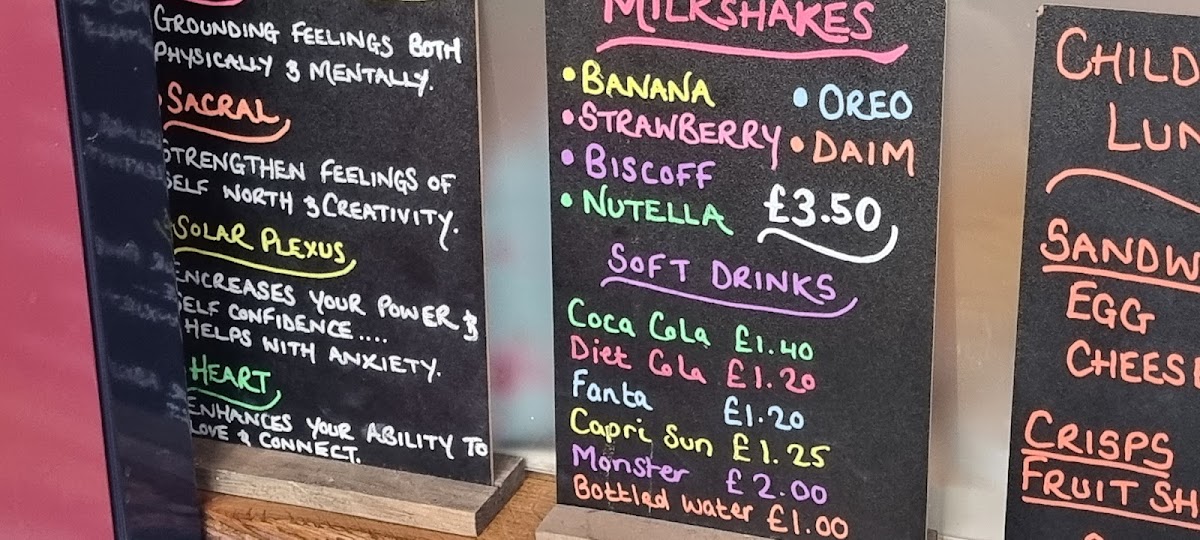 GROUNDING FEELINGS BOTH
PHYSICALLY & MENTALLY.
SACRAL
STRENGTHEN FEELINGS OF
SELF WORTH & CREATIVITY.
SOLAR PLEXUS
ENCREASES YOUR POWER &
SELF CONFIDENCE....
HELPS WITH ANXIETY.
HEART
ENHANCES YOUR ABILITY TO
LOVE & CONNECT.
MILKSHAKES
• BANANA
• STRAWBERRY
• BISCOFF
• NUTELLA
• OREO
• DAIM
£3.50
SOFT DRINKS
Coca Cola £1.40
Diet Cola £1.20
Fanta £1.20
Capri Sun £1.25
Monster £2.00
Bottled water £1.00
CHILD
LUN
SANDW
EGG
CHEES
CRISPS
FRUIT SH